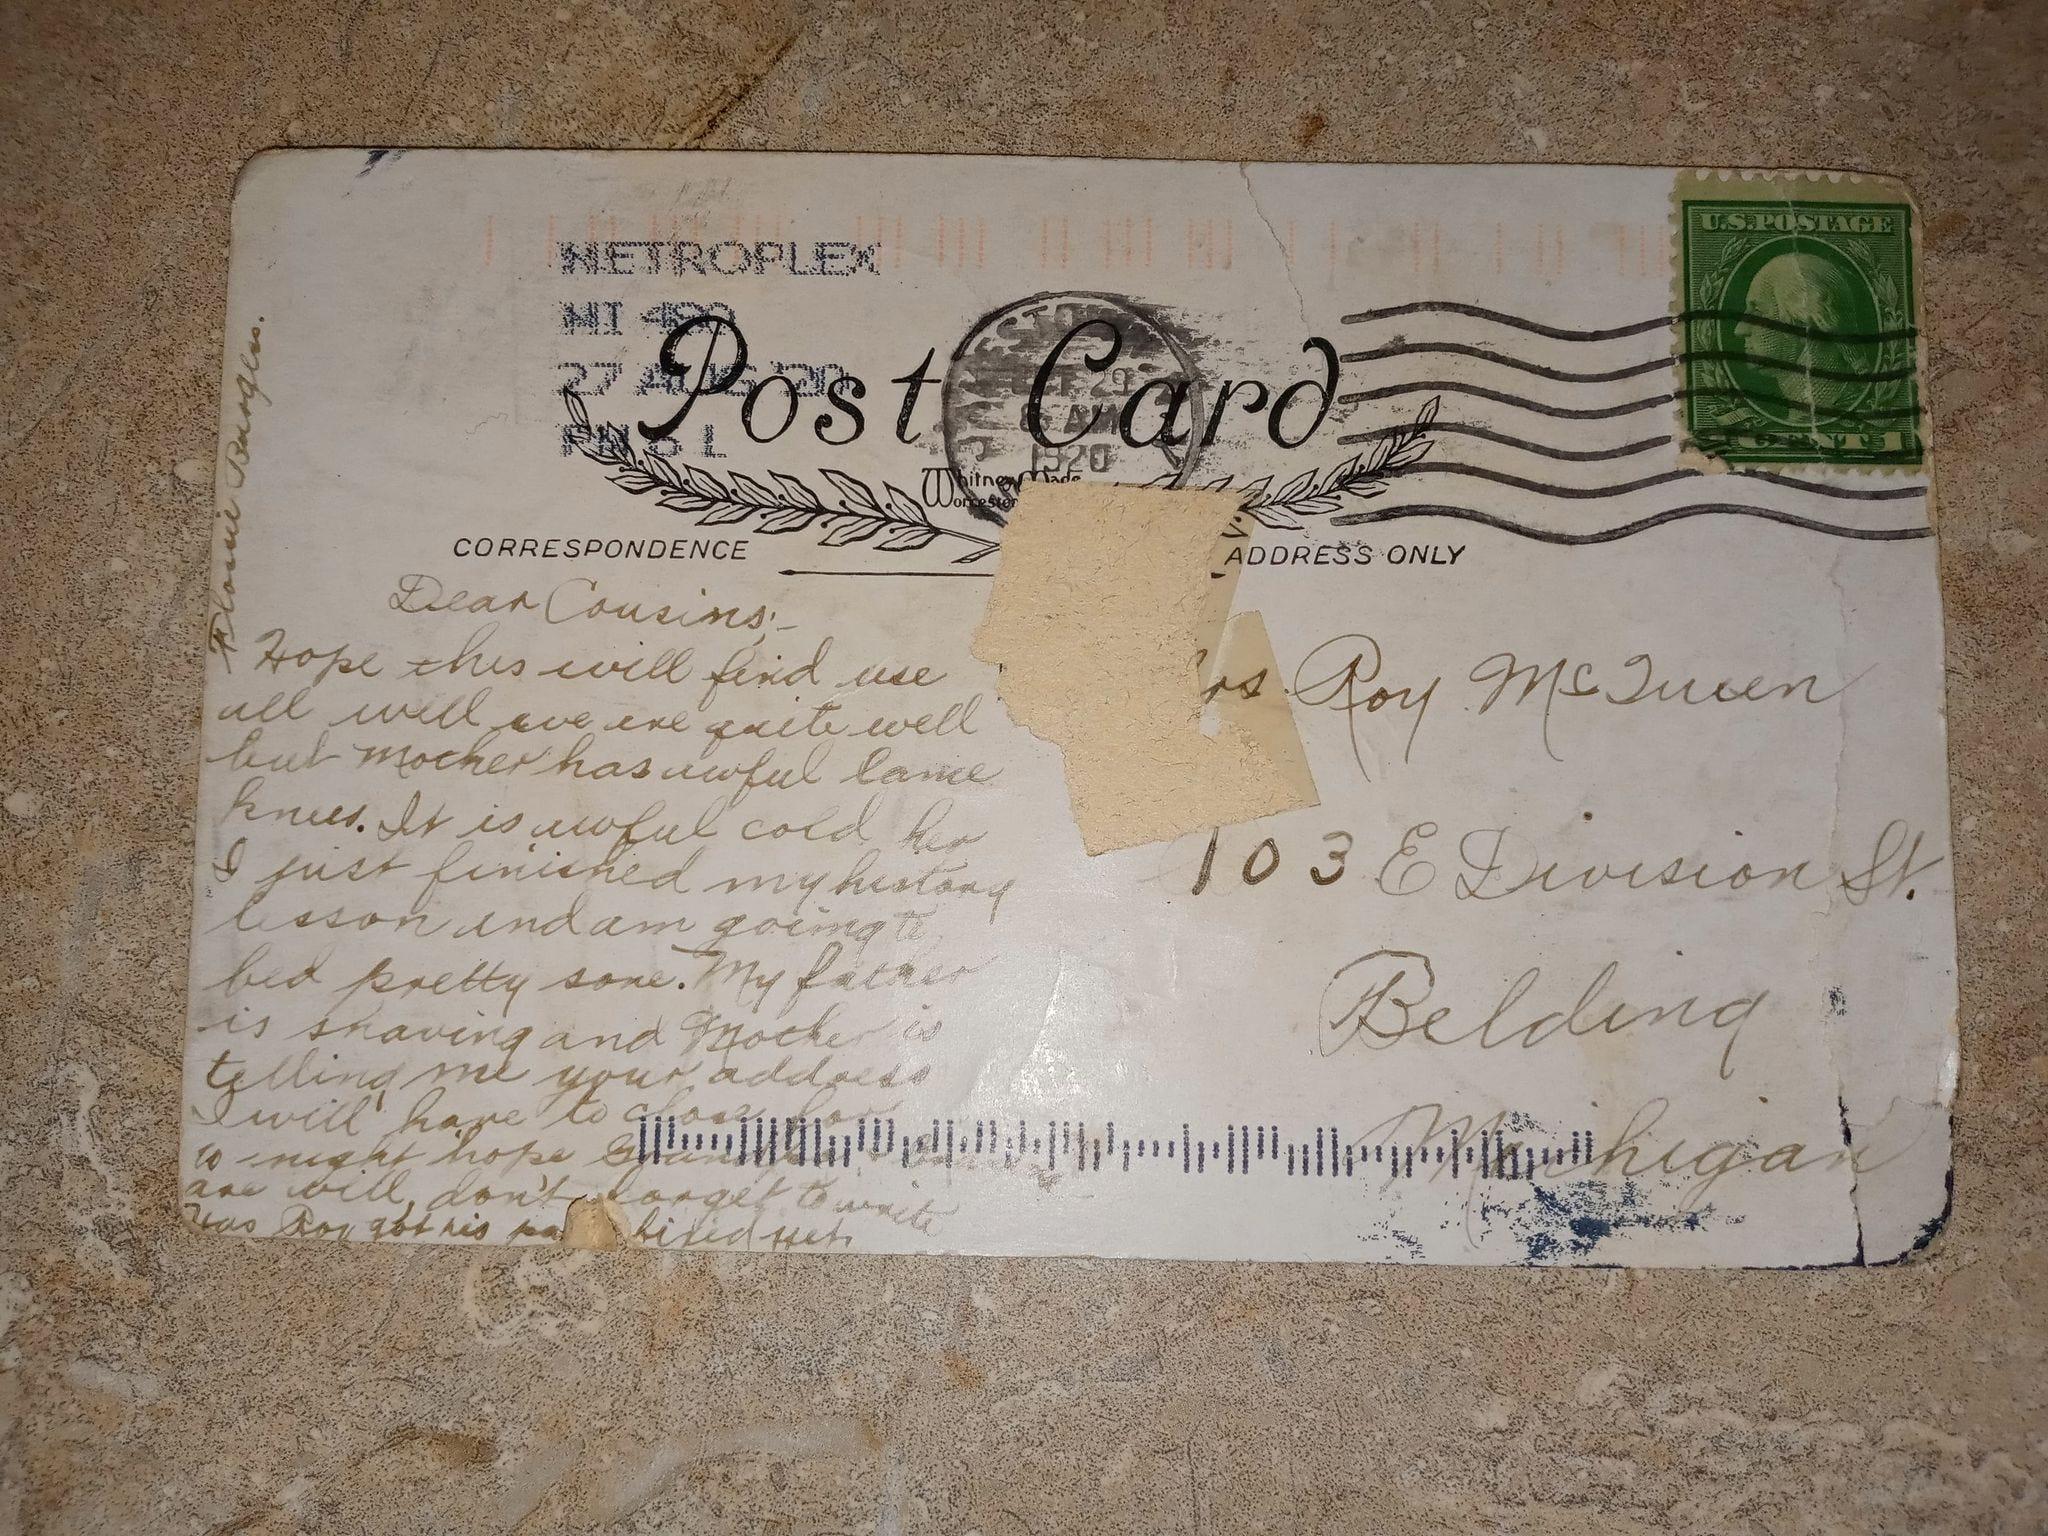 U.S. POSTAGE
METROPLEX
MI 480
27 AUG '20
PM 5 L
Post Card
JAMESTOWN
OCT 29
8 AM
1920
Whitney Made
Worcester
CORRESPONDENCE
ADDRESS ONLY
Dear Cousins;-
Hope this will find use
all well we are quite well
but Mother has awful lame
knees. It is awful cold her
I just finished my history
lesson and am going to
bed pretty sone. My father
is shaving and Mother is
telling me your address
I will have to close for
to-night hope
are will, don't forget to write
Has Roy got his pa hired yet.
Flossie
rs Roy McQueen
103 E Division St.
Belding
Michigan
CENT 1